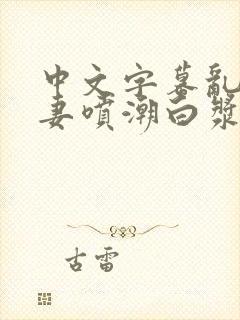 中文字墓亂
妻噴潮白漿
古雷